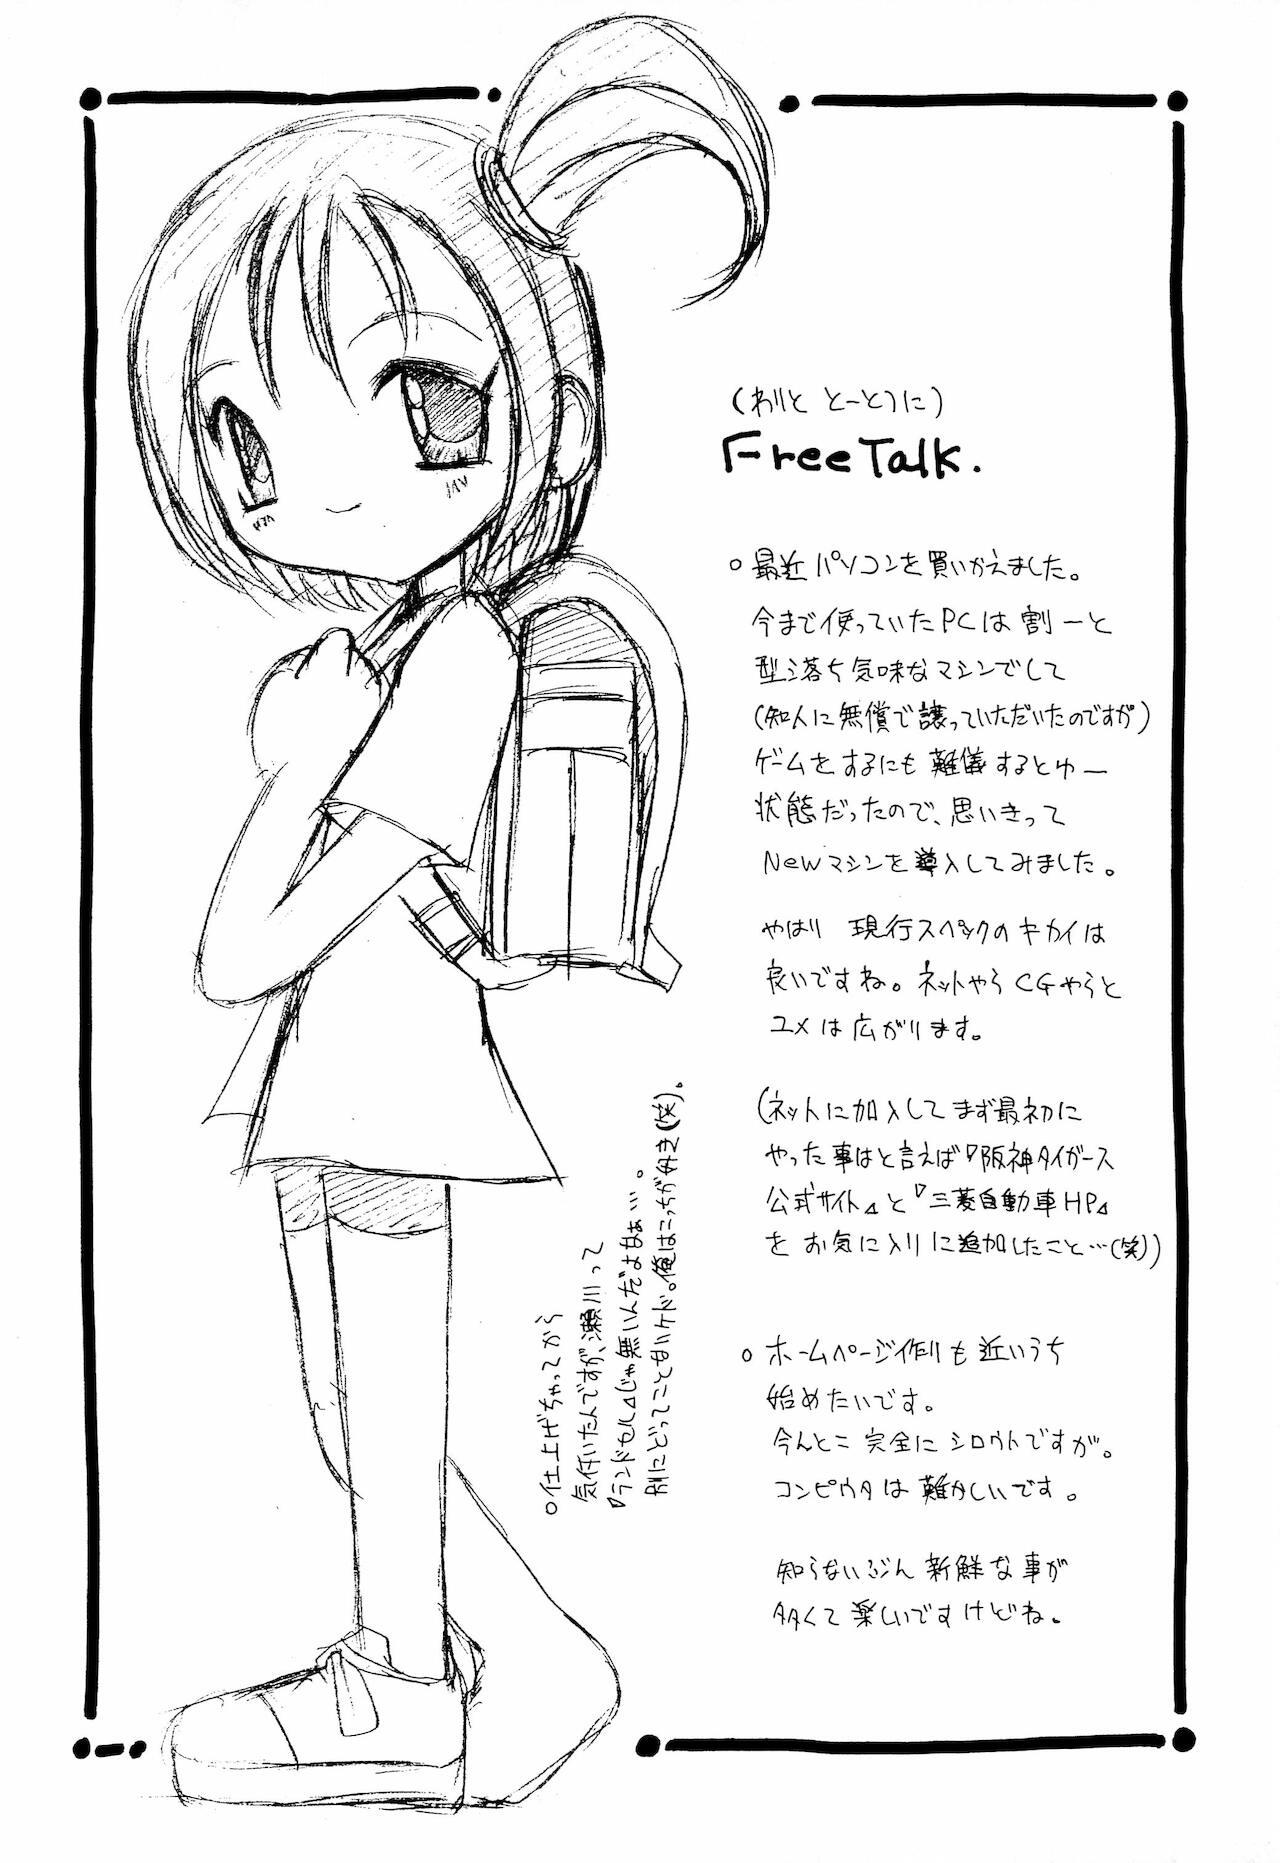 (わりと とーとつに)
Free Talk.
○最近パソコンを買いかえました。
今まで使っていたPCは割ーと
型落ち気味なマシンでして
(知人に無償で譲っていただいたのですが)
ゲームをするにも難儀するとゆー
状態だったので、思いきって
Newマシンを導入してみました。
やはり 現行スペックのキカイは
良いですね。ネットやら CGやらと
ユメは広がります。
(ネットに加入してまず最初に
やった事はと言えば『阪神タイガース
公式サイト』と『三菱自動車HP』
をお気に入りに追加したこと…(笑))
○ホームページ作りも近いうち
始めたいです。
今んとこ完全にシロウトですが。
コンピウタは難かしいです。
知らないぶん新鮮な事が
多くて楽しいですけどね。
○仕上げちゃってから
気付いたんですが、瀬川って
『ランドセル』じゃ無いんだよなぁ…。
別にどってことないケド。俺はこっちが好き(笑)。